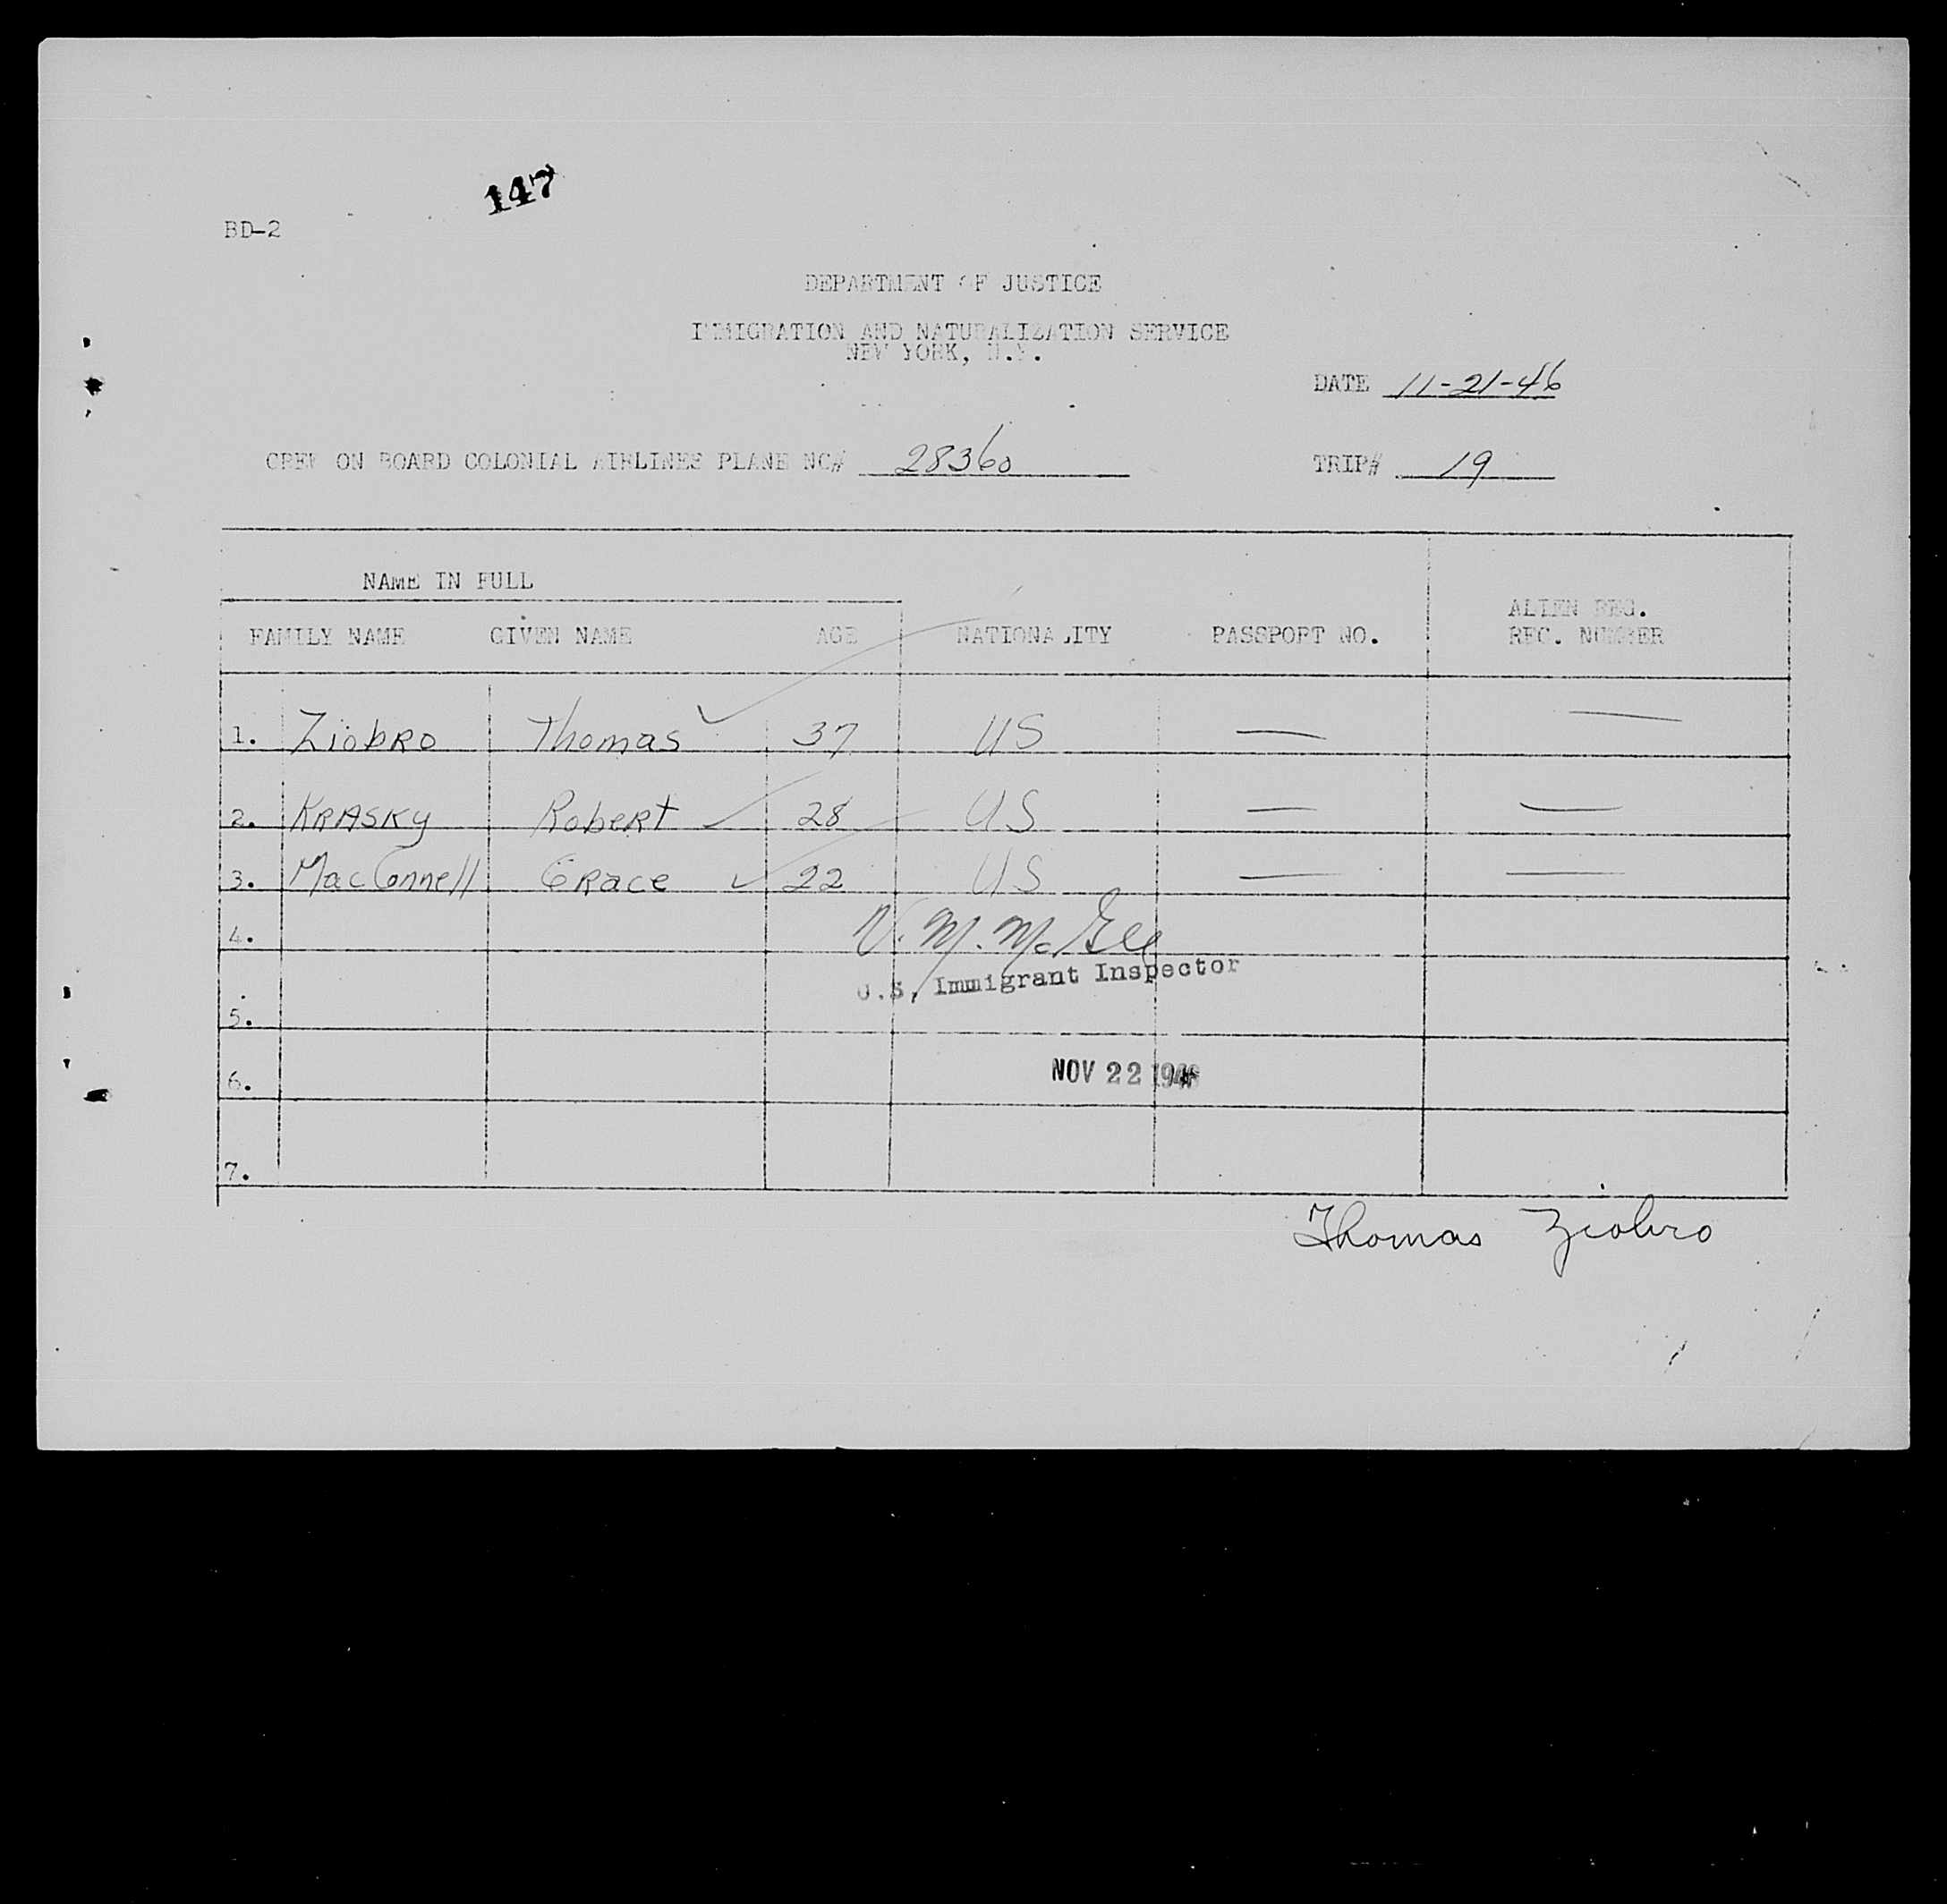 147
BD-2
DEPARTMENT OF JUSTICE
IMMIGRATION AND NATURALIZATION SERVICE
NEW YORK, N.Y.
DATE 11-21-46
CREW ON BOARD COLONIAL AIRLINES PLANE NC# 28360 TRIP# 19
NAME IN FULL
FAMILY NAME GIVEN NAME AGE NATIONALITY PASSPORT NO. ALIEN REG. REC. NUMBER
1. Ziobro Thomas ✓ 37 US — —
2. KRASKY Robert ✓ 28 US — —
3. MacConnell Grace ✓ 22 US — —
4. V. M. McGee
U.S. Immigrant Inspector
5.
6. NOV 22 1946
7.
Thomas Ziobro